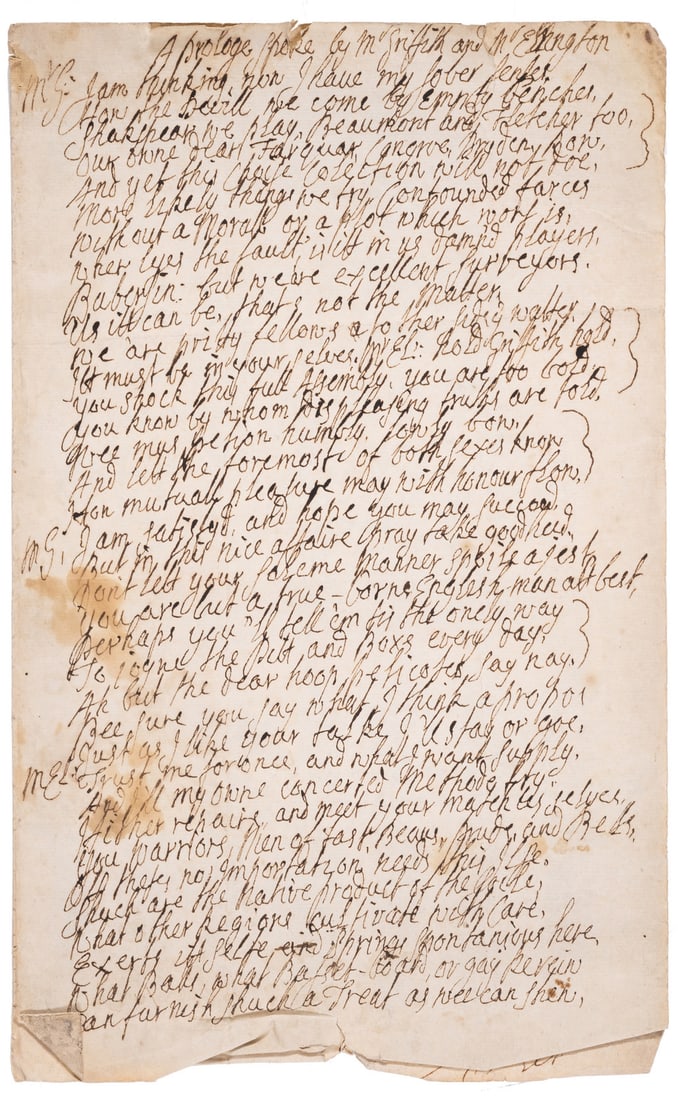 A prologe spoke by Mr Griffith and Mr Ellington
Mr G: I am thinking now I have my sober senses
How the Devill we come by Empty benches,
Shakspear we play, Beaumont and Fletcher too,
Our owne dear Farquar, Congrve, Dryden, Row,
And yet this Choise Colection will not doe,
More likely things we try, Confounded farces
without a Morall or a plot which wors is,
wher lyes the fault, is itt in us damn'd players,
but we are excellent surveyors.
As itt can be, that's not the Matter,
we are pritty fellows to
Itt must be in your selves. Mr El: hold Griffith hold,
You shock this full Assembly, you are too bold,
You know by whom displeasing truths are told,
wee must petion humbly, lowly bow,
And lett the foremost of both sexes know
How mutuall pleasure may with honour flow,
Mr G: I am satisfyd, and hope you may succed
But in this nice affaire pray take good heed,
Dont lett your soleme manner spoile a jest
You are but a true-borne English man att best,
Perhaps you'll tell 'em tis the onely way
To joyne the Pitt and Boxs every day,
Ah but the dear hoop peticotes, say nay,
Bee sure you say what I think apropos
Just as I like your talke, I'll stay or goe,
Mr El: Trust me for once, and what's want supply,
And I'll my owne concerted Methods try.
Hither repaire, and meet your matchles selves,
You warriors, Men of tast, Beaus, Pruds, and Bells,
Of thes, no importation needs this Isle,
Shuch are the Native product of the soile,
What other Regions cultivate with Care,
Exerts itt selfe and Springs Spontaniors here
What Balls, what Basset-board or gay
Can furnish shuch a Treat as wee can shew,